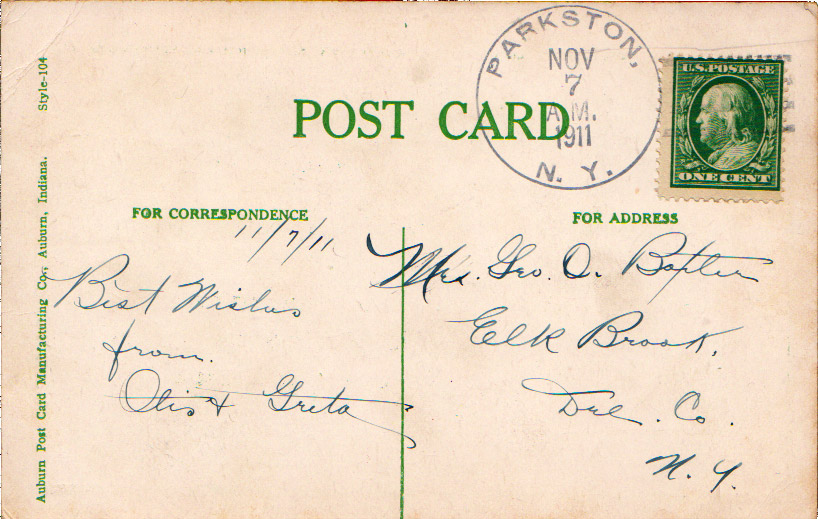 PARKSTON,
NOV
7
A.M.
1911
N. Y.
U.S. POSTAGE
ONE CENT
POST CARD
FOR CORRESPONDENCE
FOR ADDRESS
11/7/11
Best Wishes
from.
Otis & Greta
Mrs. Geo. O. Baxter
Elk Brook.
Del. Co.
N. Y.
Auburn Post Card Manufacturing Co., Auburn, Indiana. Style-104